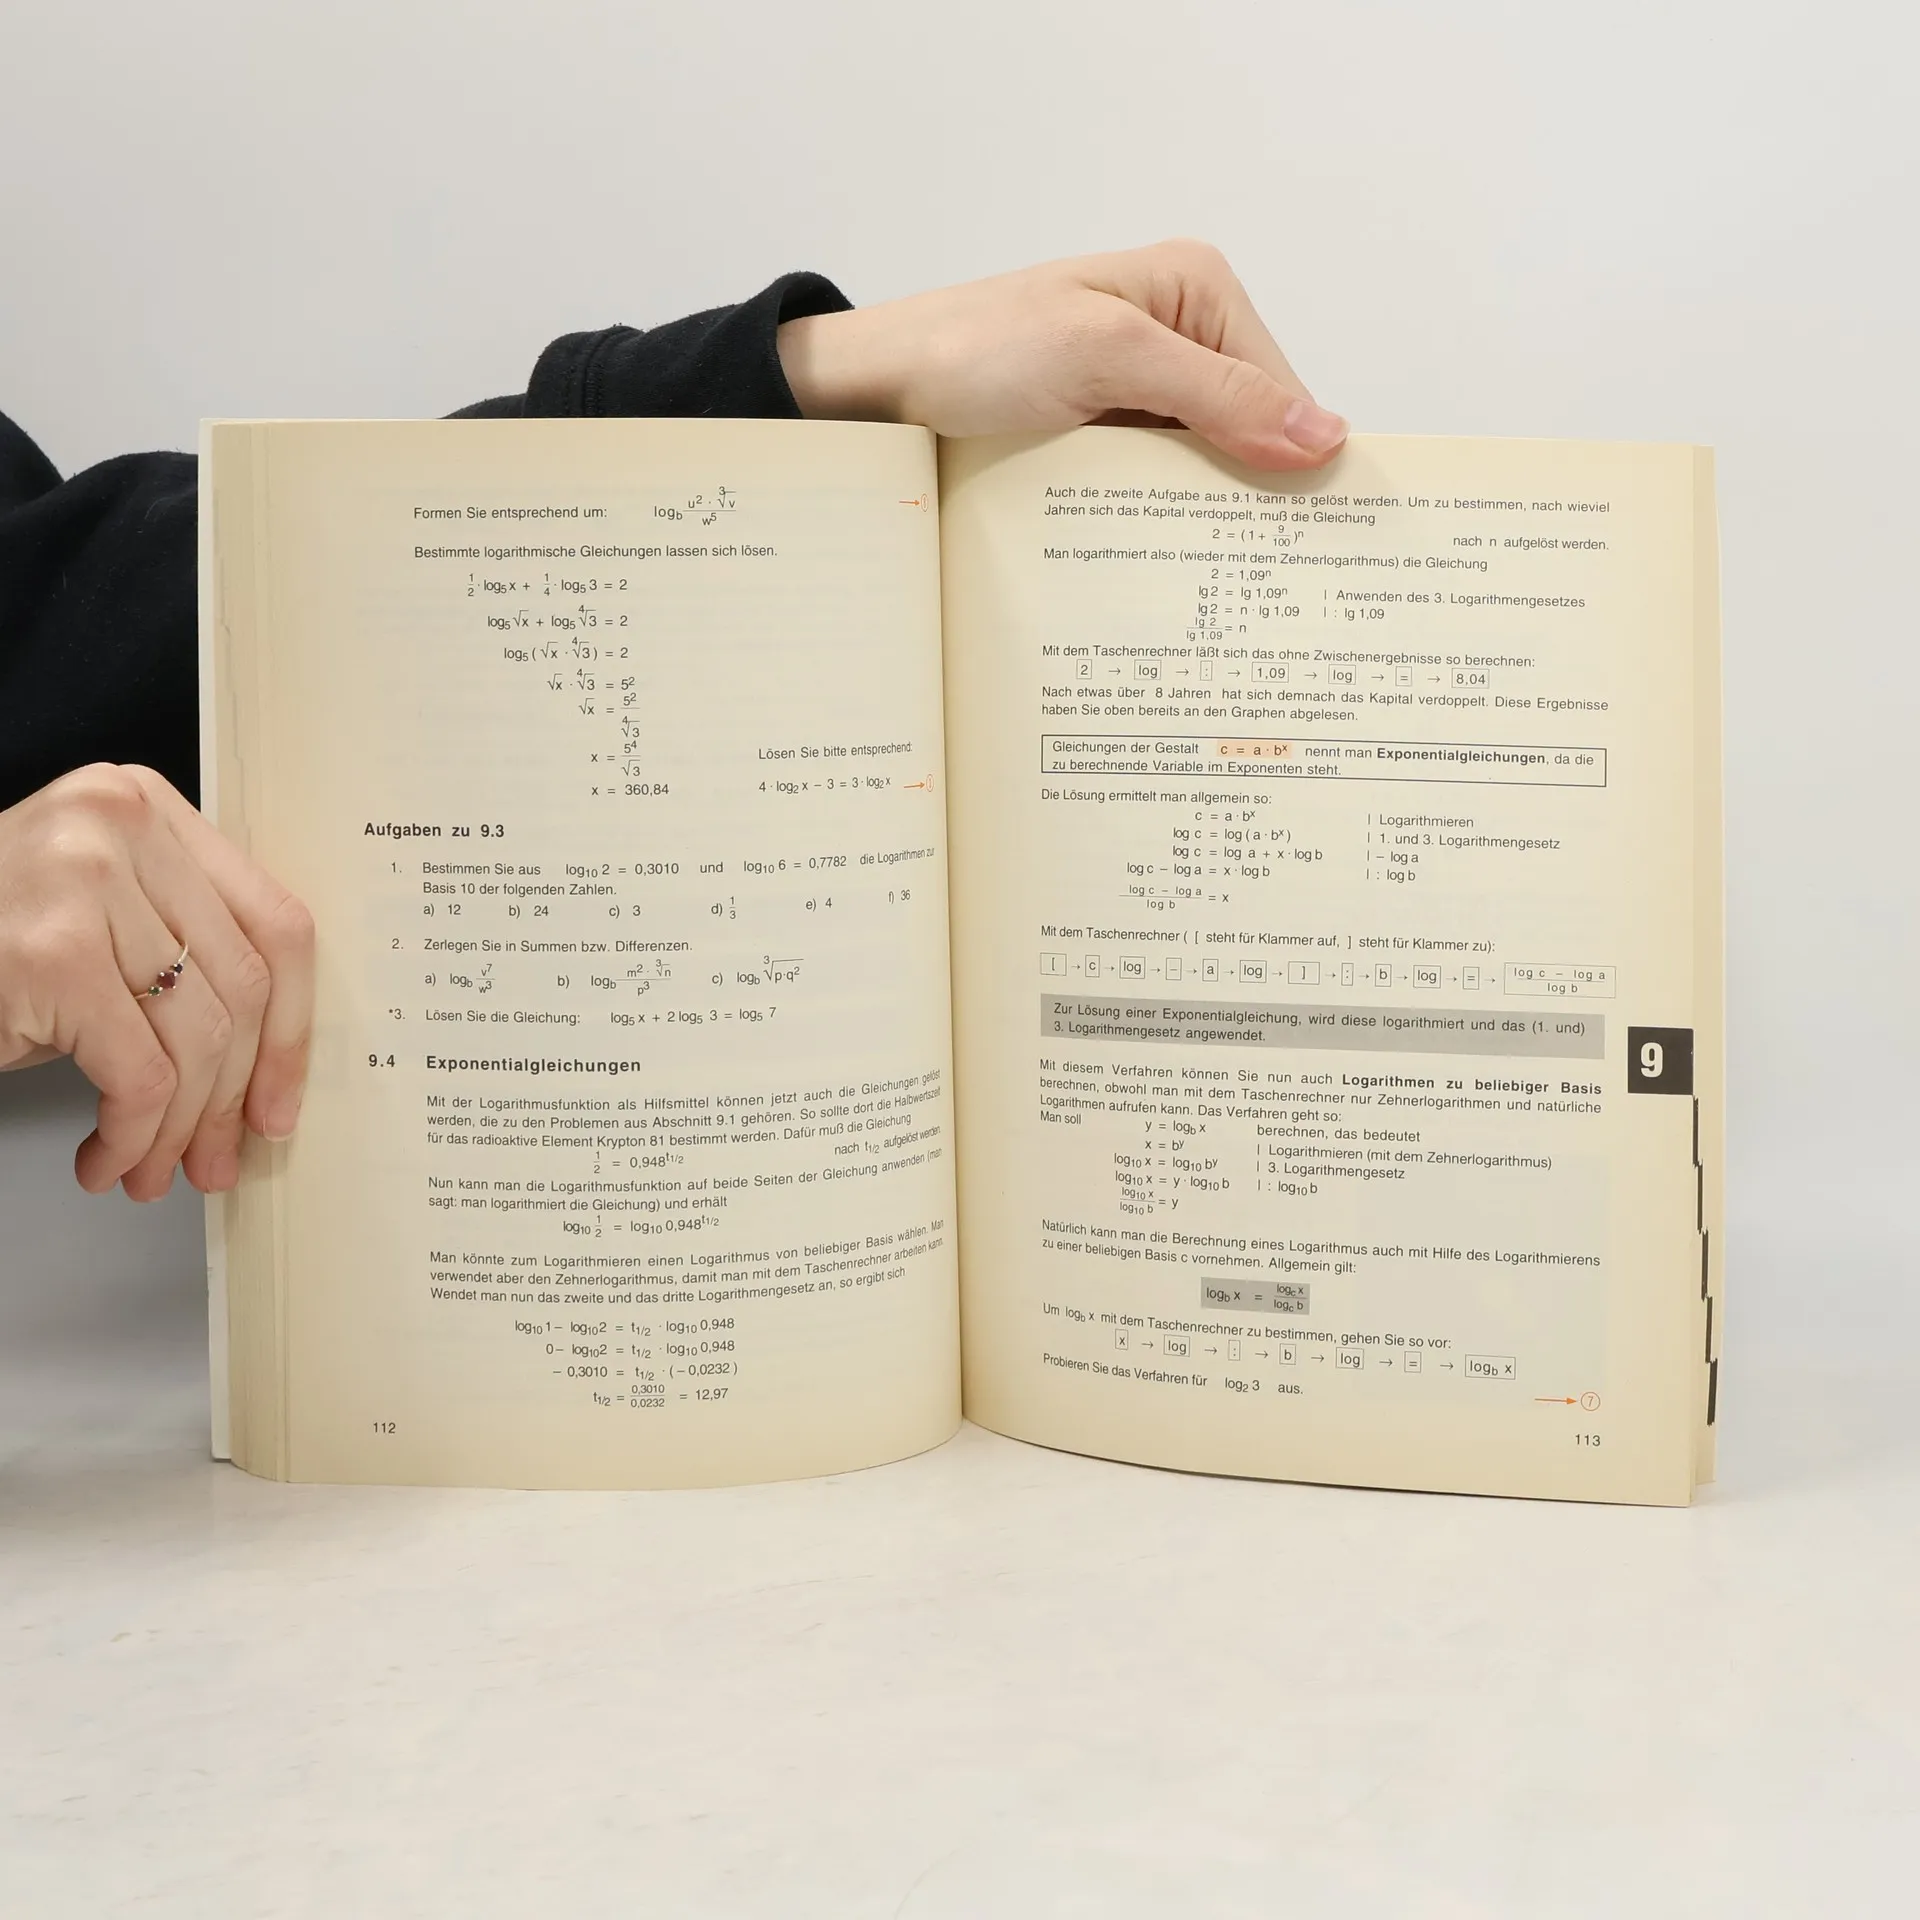 Formen Sie entsprechend um: log_b (u² · ∛v)/w⁵ →
Bestimmte logarithmische Gleichungen lassen sich lösen.
1/2 · log₅ x + 1/4 · log₅ 3 = 2
log₅ √x + log₅ ∜3 = 2
log₅ ( √x · ∜3 ) = 2
√x · ∜3 = 5²
√x = 5²/∜3
x = 5⁴/√3
Lösen Sie bitte entsprechend:
x = 360,84
4 · log₂ x − 3 = 3 · log₂ x →
Aufgaben zu 9.3
1. Bestimmen Sie aus log₁₀ 2 = 0,3010 und log₁₀ 6 = 0,7782 die Logarithmen zur
Basis 10 der folgenden Zahlen.
a) 12 b) 24 c) 3 d) 1/3 e) 4 f) 36
2. Zerlegen Sie in Summen bzw. Differenzen.
a) log_b v⁷/w³ b) log_b (m² · ∛n)/p³ c) log_b ∛(p·q²)
*3. Lösen Sie die Gleichung: log₅ x + 2 log₅ 3 = log₅ 7
9.4 Exponentialgleichungen
Mit der Logarithmusfunktion als Hilfsmittel können jetzt auch die Gleichungen gelöst
werden, die zu den Problemen aus Abschnitt 9.1 gehören. So sollte dort die Halbwertszeit
für das radioaktive Element Krypton 81 bestimmt werden. Dafür muß die Gleichung
1/2 = 0,948^t1/2 nach t1/2 aufgelöst werden.
Nun kann man die Logarithmusfunktion auf beide Seiten der Gleichung anwenden (man
sagt: man logarithmiert die Gleichung) und erhält
log₁₀ 1/2 = log₁₀ 0,948^t1/2
Man könnte zum Logarithmieren einen Logarithmus von beliebiger Basis wählen. Man
verwendet aber den Zehnerlogarithmus, damit man mit dem Taschenrechner arbeiten kann.
Wendet man nun das zweite und das dritte Logarithmengesetz an, so ergibt sich
log₁₀ 1 − log₁₀ 2 = t1/2 · log₁₀ 0,948
0 − log₁₀ 2 = t1/2 · log₁₀ 0,948
− 0,3010 = t1/2 · ( − 0,0232 )
t1/2 = 0,3010/0,0232 = 12,97
112
Auch die zweite Aufgabe aus 9.1 kann so gelöst werden. Um zu bestimmen, nach wieviel
Jahren sich das Kapital verdoppelt, muß die Gleichung
2 = ( 1 + 9/100 )ⁿ nach n aufgelöst werden.
Man logarithmiert also (wieder mit dem Zehnerlogarithmus) die Gleichung
2 = 1,09ⁿ
lg 2 = lg 1,09ⁿ | Anwenden des 3. Logarithmengesetzes
lg 2 = n · lg 1,09 | : lg 1,09
lg 2/lg 1,09 = n
Mit dem Taschenrechner läßt sich das ohne Zwischenergebnisse so berechnen:
2 → log → : → 1,09 → log → = → 8,04
Nach etwas über 8 Jahren hat sich demnach das Kapital verdoppelt. Diese Ergebnisse
haben Sie oben bereits an den Graphen abgelesen.
Gleichungen der Gestalt c = a · bˣ nennt man Exponentialgleichungen, da die
zu berechnende Variable im Exponenten steht.
Die Lösung ermittelt man allgemein so:
c = a · bˣ | Logarithmieren
log c = log ( a · bˣ ) | 1. und 3. Logarithmengesetz
log c = log a + x · log b | − log a
log c − log a = x · log b | : log b
(log c − log a)/log b = x
Mit dem Taschenrechner ( [ steht für Klammer auf, ] steht für Klammer zu):
[ → c → log → − → a → log → ] → : → b → log → = → (log c − log a)/log b
Zur Lösung einer Exponentialgleichung, wird diese logarithmiert und das (1. und)
3. Logarithmengesetz angewendet.
9
Mit diesem Verfahren können Sie nun auch Logarithmen zu beliebiger Basis
berechnen, obwohl man mit dem Taschenrechner nur Zehnerlogarithmen und natürliche
Logarithmen aufrufen kann. Das Verfahren geht so:
Man soll y = log_b x berechnen, das bedeutet
x = bʸ | Logarithmieren (mit dem Zehnerlogarithmus)
log₁₀ x = log₁₀ bʸ | 3. Logarithmengesetz
log₁₀ x = y · log₁₀ b | : log₁₀ b
log₁₀ x/log₁₀ b = y
Natürlich kann man die Berechnung eines Logarithmus auch mit Hilfe des Logarithmierens
zu einer beliebigen Basis c vornehmen. Allgemein gilt:
log_b x = log_c x/log_c b
Um log_b x mit dem Taschenrechner zu bestimmen, gehen Sie so vor:
x → log → : → b → log → = → log_b x
Probieren Sie das Verfahren für log₂ 3 aus.
→ 7
113